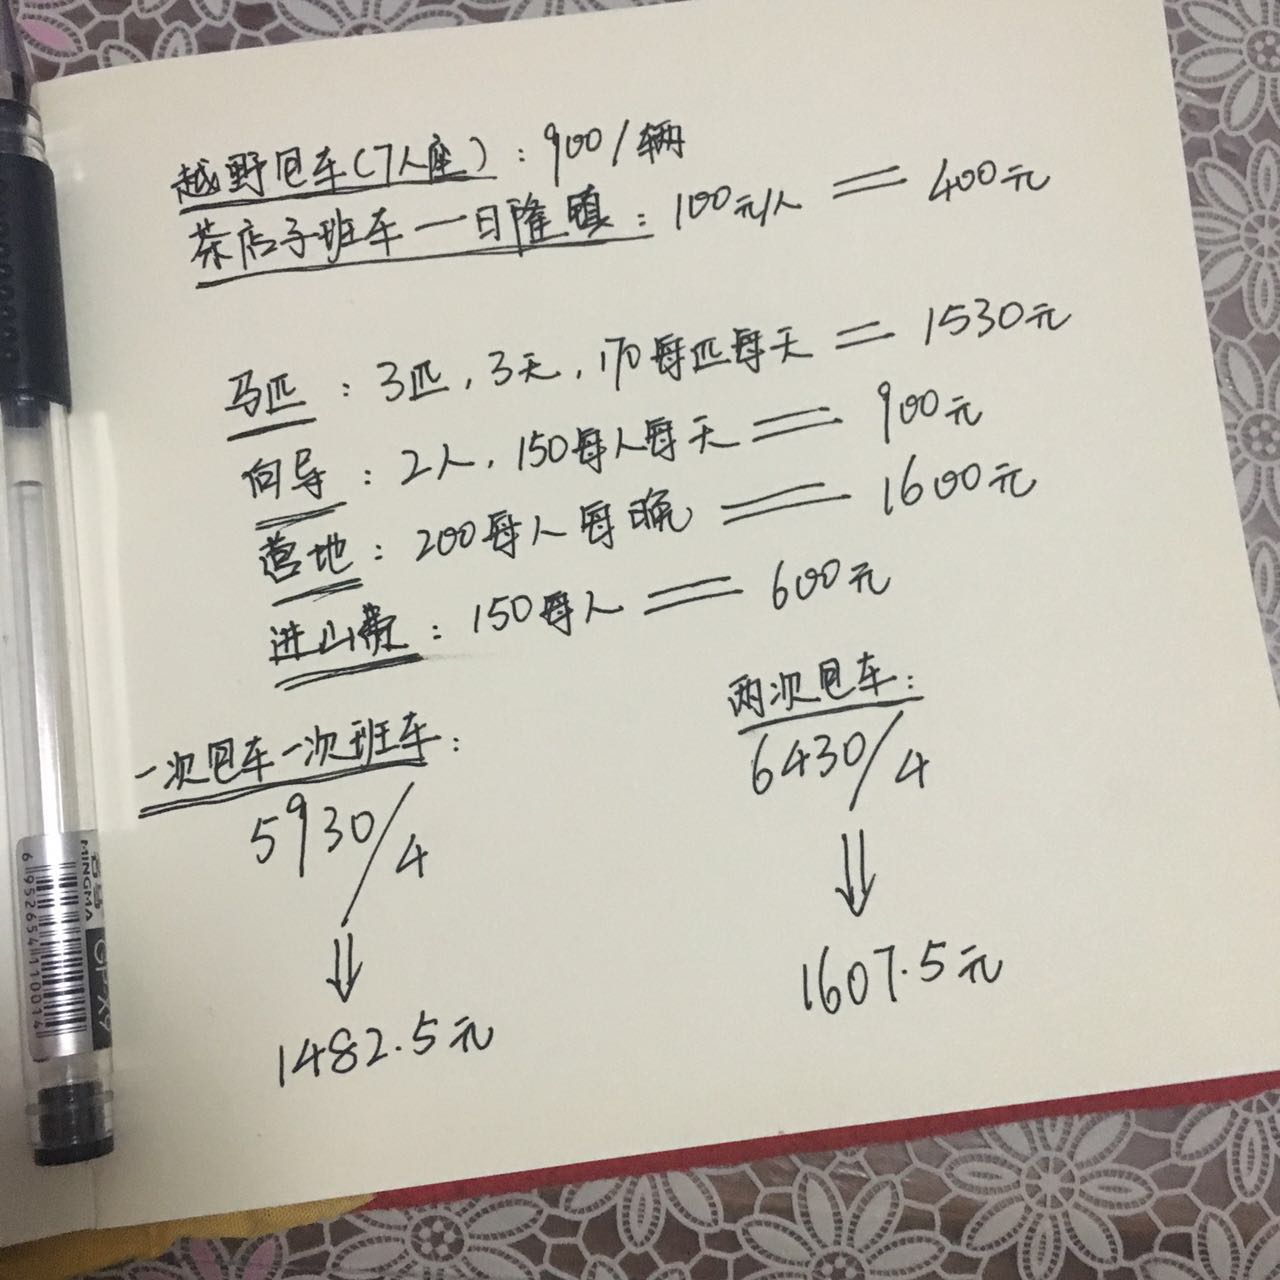 越野包车(7人座):900/辆
茶店子班车—日隆镇:100元/人 = 400元
马匹:3匹,3天,170每匹每天 = 1530元
向导:2人,150每人每天 = 900元
营地:200每人每晚 = 1600元
进山费:150每人 = 600元
一次包车一次班车:
5930/4
⇓
1482.5元
两次包车:
6430/4
⇓
1607.5元
MINGMA
6952654110014